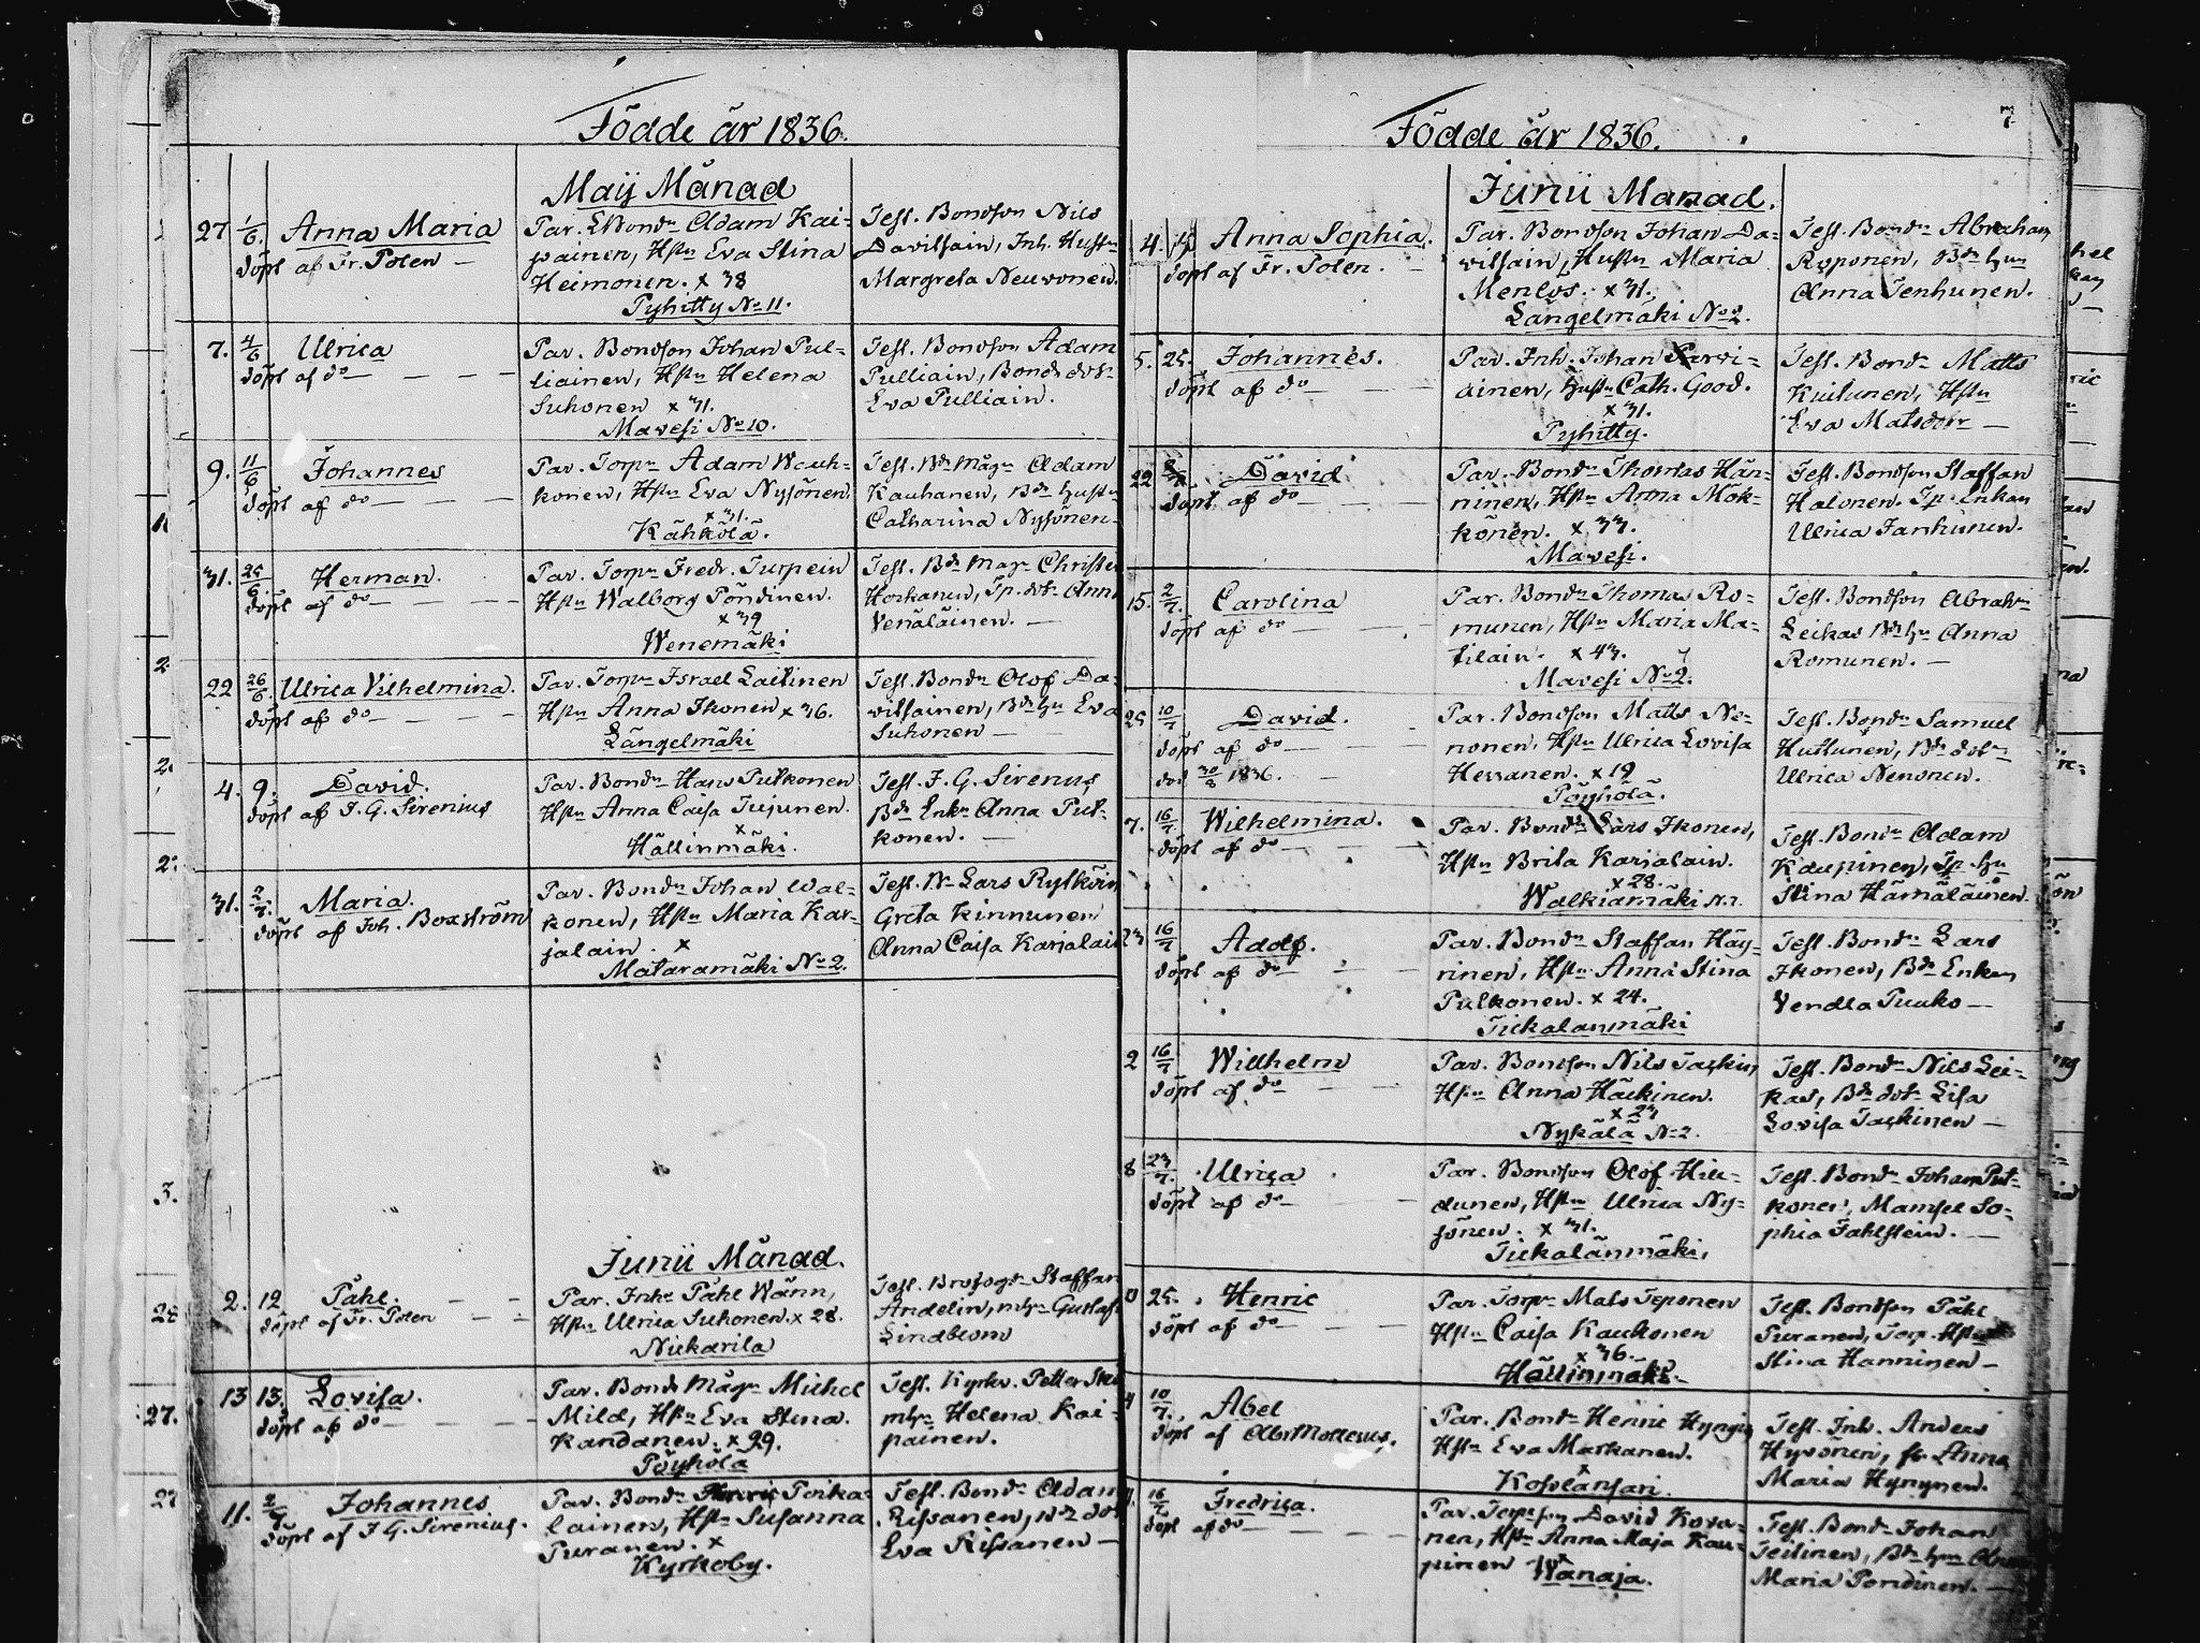 Födde år 1836.
Maij Månad
27 1/6. Anna Maria
döpt af Fr. Polen —
Par. Bond. Adam Kai=
painen, Hstu Eva Stina
Heimonen. x 38
Pyhitty No 11.
Test. Bondson Nils
Davilsain, Inh. Hustru
Margreta Neuvonen.
7. 4/6 Ulrica
döpt af do — — —
Par. Bondson Johan Pul=
liainen, Hstu Helena
Suhonen x 31.
Mavesi No 10.
Test. Bondson Adam
Pulliain, Bonde dotr
Eva Pulliain.
9. 11/6 Johannes
döpt af do — — —
Par. Torpr Adam Wauh=
konen, Hstu Eva Nysönen.
x 31.
Kähkölä.
Test. Bde Mågn Adam
Kauhanen, Bde hustu
Catharina Nysönen.
31. 25/6 Herman.
döpt af do — — —
Par. Torpr Fredr. Turpein
Hstu Walborg Pöndinen.
x 39
Wenemäki
Test. Bde Mågn Christer
Horkanen, Tp. dotr Anna
Venäläinen. —
22 26/6. Ulrica Vilhelmina.
döpt af do — — —
Par. Torpr Israel Laitinen
Hstu Anna Ikonen x 36.
Längelmäki
Test. Bondn Olof Da=
vilsainen, Bde hu Eva
Suhonen —
4. 9. David.
döpt af J. G. Sirenius
Par. Bondn Hans Putkonen
Hstu Anna Caisa Jujunen.
x
Hällinmäki.
Test. J. G. Sirenius
Bde Enka Anna Put=
konen. —
31. 2/7. Maria.
döpt af Joh. Boxström
Par. Bondn Johan Wal=
konen, Hstu Maria Kar=
jalain. x
Mataramäki No 2.
Test. Lars Rytköin
Greta Kinnunen
Anna Caisa Karjalain
Junii Månad.
2. 12 Påhl. — —
döpt af Fr. Polen — —
Par. Inhr Påhl Wänn,
Hstu Ulrica Suhonen. x 28.
Niekarila
Test. Staffan
Andelin, Gustafs
Lindblom
13 13. Lovisa.
döpt af do — — —
Par. Bonde Mågn Michel
Mild, Hstu Eva Stina.
Kandanen. x 29.
Pöyhölä
Test. Kyrkv. Petter
Helena Kai=
painen.
11. 2/7 Johannes
döpt af J. G. Sirenius.
Par. Bondn Poika=
lainen, Hstu Susanna
Puranen. x
Kyrkoby.
Test. Bondn Adam
Rissanen, Bde dotr
Eva Rissanen —
Födde år 1836.
7
Junii Månad.
4. Anna Sophia.
döpt af Fr. Polen. —
Par. Bondson Johan Da=
vilsain, Hustu Maria
Menlös. x 31.
Längelmäki No 2.
Test. Bondn Abraham
Roponen, Bde hun
Anna Tenhunen.
5. 25. Johannes.
döpt af do — — —
Par. Inh. Johan Parvi=
ainen, hustu Cath. Good.
x 31.
Pyhitty.
Test. Bondn Matts
Kuitunen, Hstu
Eva Matsdotr —
22 David
döpt af do — — —
Par. Bondn Thomas Hän=
ninen, Hstu Anna Mök=
könen. x 33.
Mavesi.
Test. Bondson Staffan
Halonen. Tp. Enkan
Ulrica Janhunen.
15. 2/7. Carolina
döpt af do — — —
Par. Bondn Thomas Ro=
munen, Hstu Maria Ma=
tilain. x 43.
Mavesi No 2.
Test. Bondson Abrahm
Leikas Bde hu Anna
Romunen. —
25 10/7 David.
döpt af do — — —
död 30/8 1836. —
Par. Bondson Matts Ne=
nonen, Hstu Ulrica Lovisa
Hessanen. x 19
Pöyhölä.
Test. Bondn Samuel
Huttunen, Bde dotr
Ulrica Nenonen.
7. 16/7. Wilhelmina.
döpt af do — —
Par. Bondn Lars Ikonen,
Hstu Brita Karjalain.
x 28.
Walkiamäki N. 7.
Test. Bondn Adam
Kaupinen, Tp. hu
Stina Hämäläinen.
23 16/7 Adolf.
döpt af do — — —
Par. Bondn Staffan Häy=
rinen, Hstu Anna Stina
Pulkonen. x 24.
Tiekalanmäki
Test. Bondn Lars
Ikonen, Bde Enkan
Vendla Puuko —
2 16/7 Wilhelm
döpt af do — —
Par. Bondson Nils Taskin,
Hstu Anna Häckinen.
x 23
Nykälä No 2.
Test. Bondn Nils Lei=
kas, Bde dotr Lisa
Lovisa Taskinen —
8 23/7. Ulrica
döpt af do — —
Par. Bondson Olof Hiu=
dunen, Hstu Ulrica Ny=
sönen. x 31.
Tiekalanmäki,
Test. Bondn Johan Put=
konen, Mamsel So=
phia Fahlstein. —
25. Henric
döpt af do — — —
Par. Torpr Mats Teponen
Hstu Caisa Kaukonen
x 36.
Hällinmäki. —
Test. Bondson Påhl
Puranen, Torp. Hstu
Stina Hanninen —
10/7. Abel
döpt af
Par. Bondn Henric Hynyn
Hstu Eva Markanen.
x
Koslansari.
Test. Inh. Anders
Hyvönen, Anna
Maria Hynynen.
16/7 Fredrica.
döpt af do — — —
Par. Torpson David Kova=
nen, Hstu Anna Maja Kau=
pinen x
Wanaja.
Test. Bondn Johan
Teitinen, Bde hun
Maria Pondinen. —